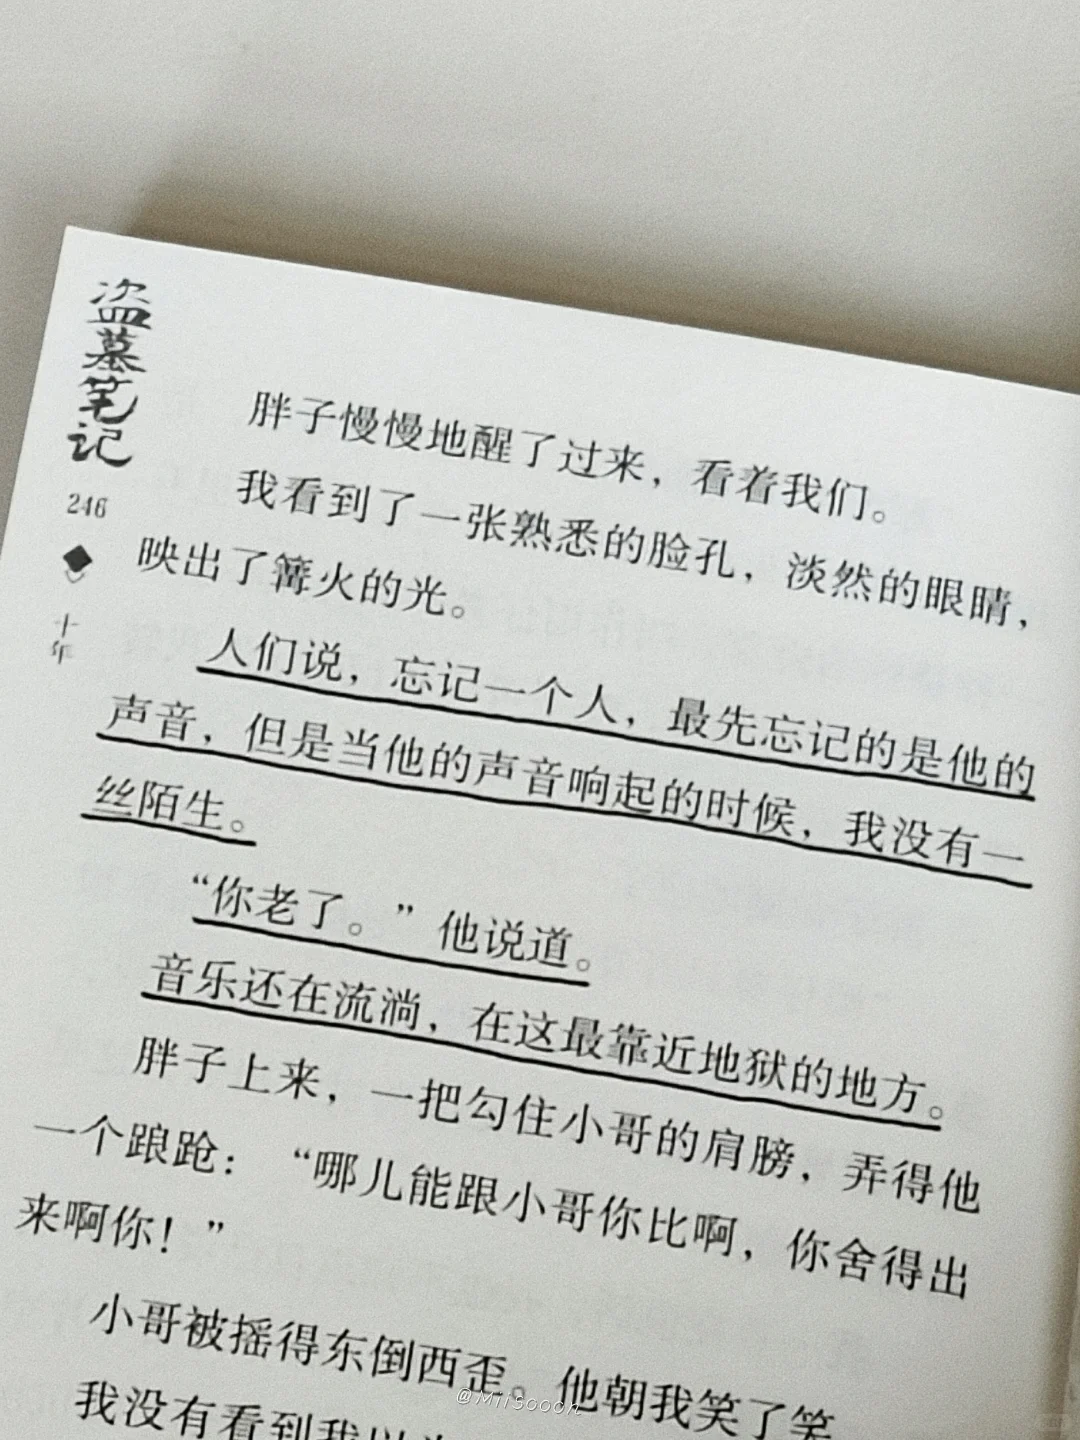 盗墓笔记
246
十年
胖子慢慢地醒了过来，看着我们。
我看到了一张熟悉的脸孔，淡然的眼睛，
映出了篝火的光。
人们说，忘记一个人，最先忘记的是他的
声音，但是当他的声音响起的时候，我没有一
丝陌生。
“你老了。”他说道。
音乐还在流淌，在这最靠近地狱的地方。
胖子上来，一把勾住小哥的肩膀，弄得他
一个踉跄：“哪儿能跟小哥你比啊，你舍得出
来啊你！”
小哥被摇得东倒西歪。他朝我笑了笑
我没有看到我以
@Miisooon